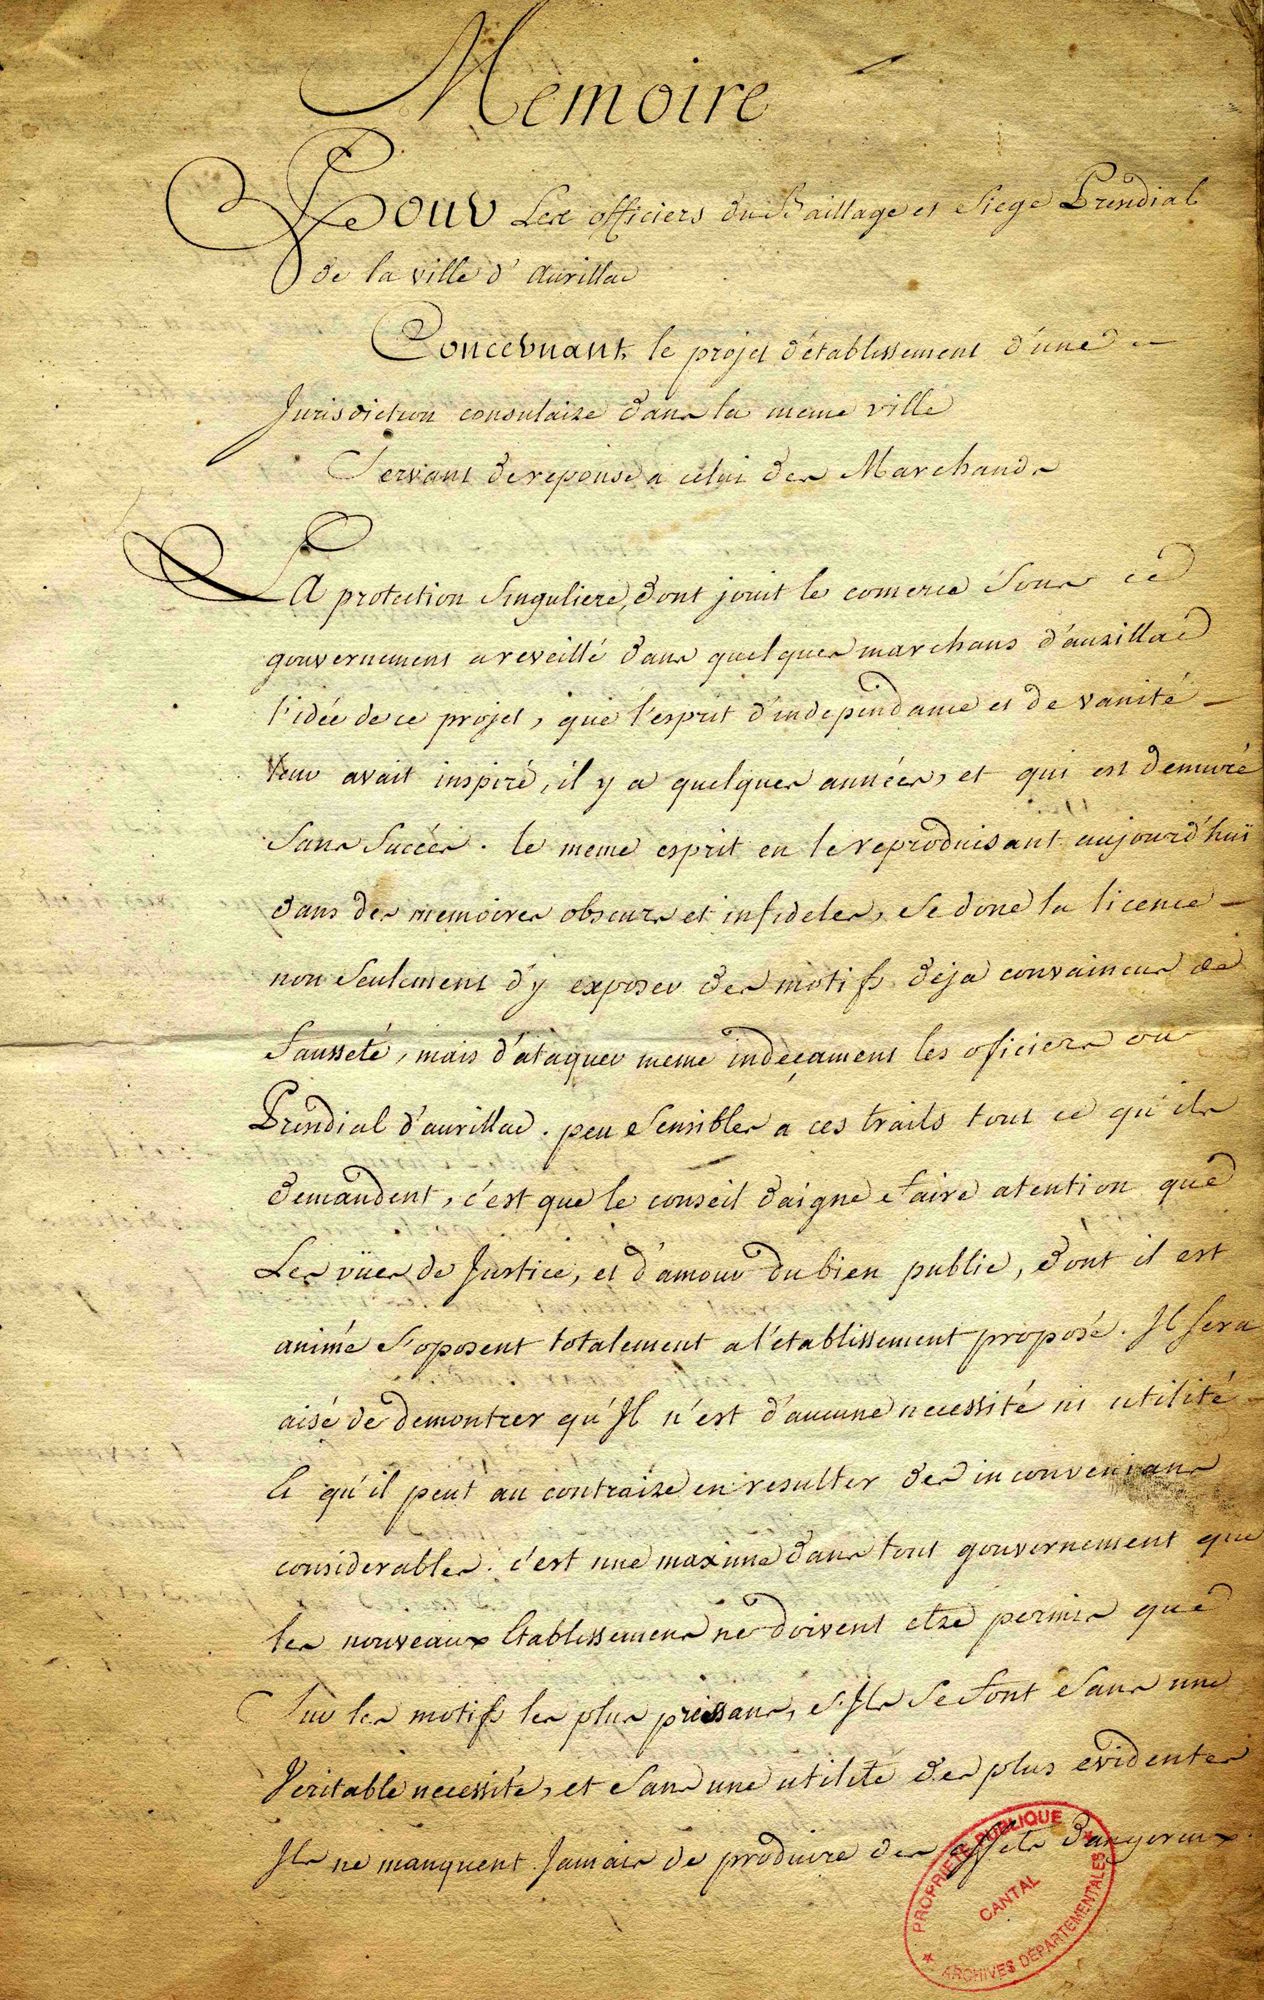 Mémoire
Pour Les officiers du Baillage et Siege Présidial
de la ville d'Aurillac
Concernant le projet d'établissement d'une
Jurisdiction consulaire dans la meme ville
Servant de reponse a celui des Marchands
LA protection Singuliere, dont jouit le comerce Sous ce
gouvernement a reveillé dans quelques marchans d'aurillac
l'idée de ce projet, que l'esprit d'independance et de vanité
leur avait inspiré, il y a quelques années, et qui est demuré
Sans Succés. le meme esprit en le reproduisant aujourd'hui
dans des memoires obscurs et infideles, Se done la licence
non Seulement d'y exposer des motifs deja convaincus de
fausseté, mais d'ataquer meme indeçament les oficiers du
Présidial d'aurillac. peu Sensibles a ces traits tout ce qu'ils
demandent, c'est que le conseil daigne faire atention que
Les vües de Justice, et d'amour du bien public, dont il est
animé S'oposent totalement a l'établissement proposé. Il Sera
aisé de demontrer qu'Il n'est d'aucune necessité ni utilité
Et qu'il peut au contraire en resulter des inconvenians
considerables. c'est une maxime dans tout gouvernement que
les nouveaux Etablissemens ne doivent etre permis que
Sur les motifs les plus pressans, S'Ils Se font Sans une
Veritable necessité, et Sans une utilité des plus evidentes
Ils ne manquent Jamais de produire des effets dangereux.
PROPRIETE PUBLIQUE
CANTAL
ARCHIVES DÉPARTEMENTALES